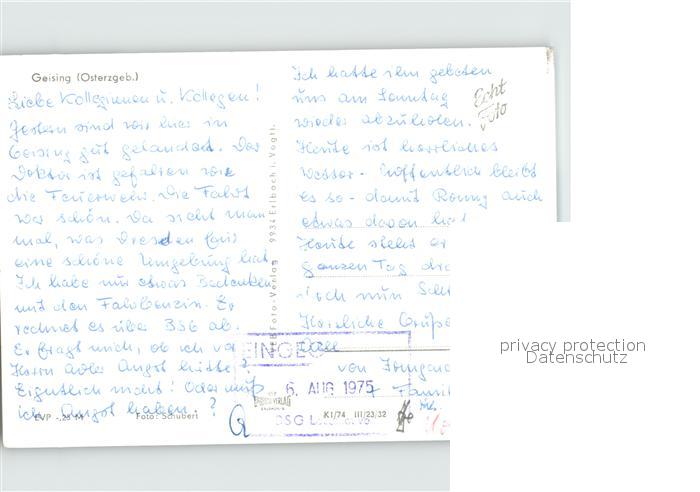 Geising (Osterzgeb.)
Liebe Kolleginnen u. Kollegen!
Gestern sind wir hier in
Geising gut gelandet. Der
Doktor ist gefahren wie
die Feuerwehr. Die Fahrt
war schön. Da sieht man
mal, was Dresden für
eine schöne Umgebung hat.
Ich habe nur etwas Bedenken
mit den Fahrbenzin. Er
rechnet es über BSG ab.
Er fragt mich, ob ich vor
Herrn Angst hätte?
Eigentlich nicht! Oder muß
ich Angst haben?
EVP -,25 M Foto: Schubert
VEB Foto-Verlag 9934 Erlbach i. Vogtl.
Ich hatte ihn gebeten
uns am Sonntag
wieder abzuholen.
Heute ist herrliches
Wetter - hoffentlich bleibt
es so - damit Ronny auch
etwas davon hat
Heute steht er
ganzen Tag
noch nun
Herzliche Grüße
von Irmgard
Echt
Foto
EINGEG
6. AUG 1975
K1/74 III/23/32
DSG
privacy protection
Datenschutz